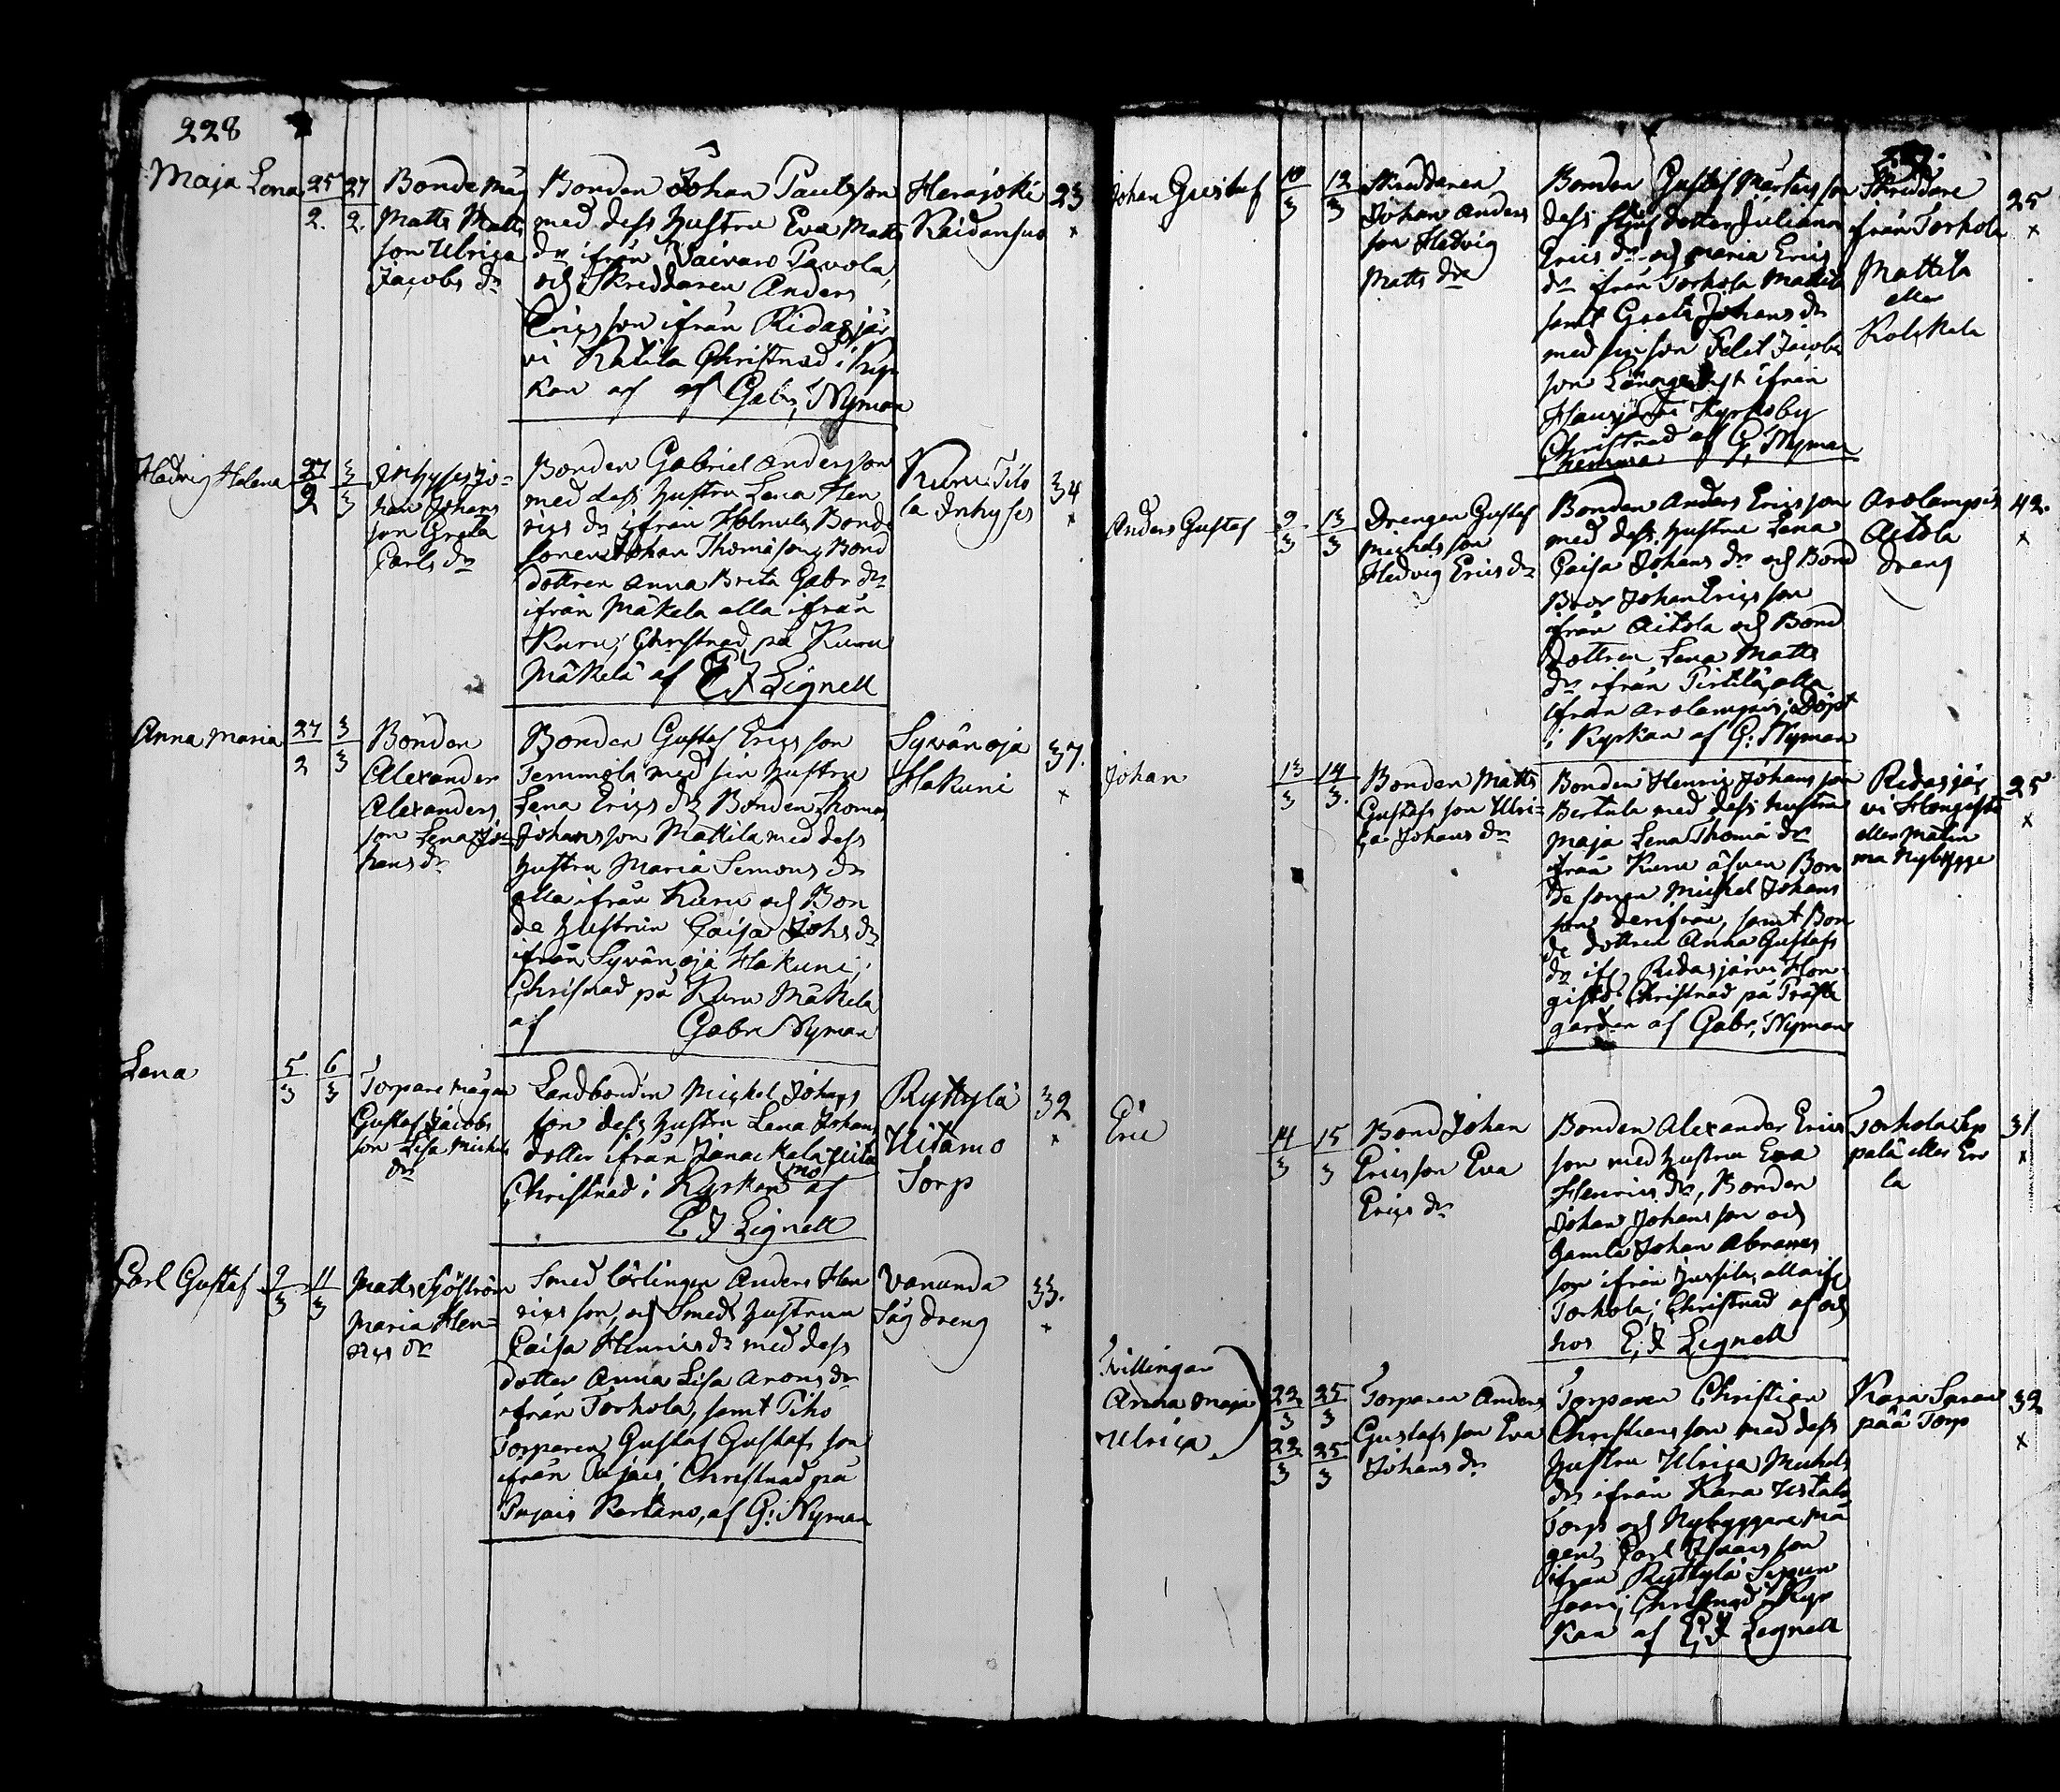 228
Maja Lena
25 27
2. 2.
Bonde måg
Matts Matts
son Ulrica
Jacobs dr
Bonden Johan Paulsson
med dess hustru Eva Matts
dr ifrån Vaivaro Pavola,
och Skreddaren Anders
Ericsson ifrån Ridasjär
vi Katila Christnad i Kyr
kan af af Gabr, Nyman
Herajoki
Raidansuo
23
x
Hedvig Helena
27 3
2 3
Inhyses Jo=
han Johans
son Greta
Carls dr
Bonden Gabriel Andersson
med dess hustru Lena Hen
rics dr ifrån Bonde
sonen Johan Thomasson, Bond
dottren Anna Brita Gabr dr
ifrån Mäkelä alla ifrån
Kuru; Christnad på Kuru
Mäkelä af E J Lignell
Kuru Tilo
la Inhyses
34
x
Anna Maria
27 3
2 3
Bonden
Alexander
Alexanders
son Lena Jo=
hans dr
Bonden Gustaf Ericsson
Temmola med sin hustru
Lena Erics dr Bonden Thomas
Johansson Mattila med dess
hustru Maria Simons dr
alla ifrån Kuru och Bon
de hustrun Caisa Johs dr
ifrån Syvänoja Hakuni;
Christnad på Kuru Mäkelä
af Gabr Nyman
Syvänoja
Hakuni
37.
x
Lena
5 6
3 3
Torpare mågen
Gustaf Jacobs
son Lisa Michels
dr
Landbonden Michel Johans
son dess hustru Lena Johans
dotter ifrån Janackala
Christnad i Kyrkan af
E J Lignell
Ryttylä
Uitamo
Torp
32
x
Carl Gustaf
9 11
3 3
Matts Sjöström
Maria Hen=
rics dr
Smed lärlingen Anders Hen
ricsson, och Smeds hustrun
Caisa Henrics dr med dess
dotter Anna Lisa Arons dr
ifrån Torhola, samt Piko
Torparen Gustaf Gustafs son
ifrån Pajais; Christnad på
Pajais Kartano, af G: Nyman
Vanunda
Såg dreng
33.
x
Johan Gustaf
10 12
3 3
Skreddaren
Johan Anders
son Hedvig
Matts dr
Bonden Gustaf Mårtensson
dess stjuf dotter Juliana
Erics dr och Maria Erics
dr ifrån Torhola Mattila
samt Greta Johans dr
med sin son Felit Jacobs
son ifrån
Hausjärvi Kyrkoby
Christnad af G, Nyman
Skreddare
från Torhola
Mattila
eller
25
x
Anders Gustaf
9 13
3 3
Drengen Gustaf
Michelsson
Hedvig Erics dr
Bonden Anders Ericsson
med dess hustru Lena
Caisa Johans dr och Bond
Bror Johan Ericsson
ifrån Aitola och Bond
dottren Lena Matts
dr ifrån Pirtilä, alla
ifrån Arolampis; Döpt
i Kyrkan af G: Nyman
Arolampis
Aitola
dreng
42.
x
Johan
13 14
3 3.
Bonden Matts
Gustafs son Ulri=
ca Johans dr
Bonden Henric Johans son
Bertula med dess hustru
Maja Lena Thomæ dr
från Kuru äfven Bon
de sonen Michel Johans
son derifrån, samt Bon
de dottren Anna Gustafs
dr ifr, Ridasjärvi Hon
gisto Christnad på Präst
garden af Gabr, Nyman
Ridasjär
vi Hongisto
eller Malin
ma Nybygge
25
x
Eric
14 15
3 3
Bond Johan
Ericsson Eva
Erics dr
Bonden Alexander Erics
son med hustru Eva
Henrics dr, Bonden
Johan Johansson och
Gamla Johan Abrams
son ifrån Jussila, alla ifr
Torhola; Christnad af och
hos E, J Lignell
Torhola Sep
pälä eller Ero
la
31
x
Tvillingar
Anna Maja
Ulrica
22 25
3 3
22 25
3 3
Torparen Anders
Gustafsson Eva
Johans dr
Torparen Christian
Christiansson med dess
hustru Ulrica Michels
dr ifrån Kara Ustala
Torp och Nybyggare må
gen, Carl
ifrån Ryttylä
saari; Christnad i Kyr
kan af E, J Lignell
Kara
pää Torp
32
x